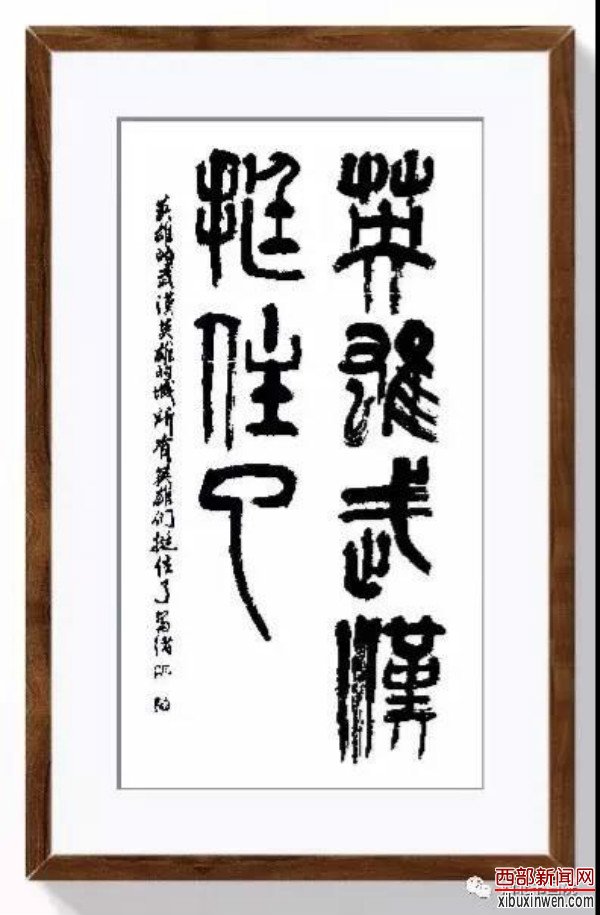 英雄武漢
挺住了
英雄的武漢英雄的城所有英雄们挺住了
西部新闻网
xibuxinwen.com